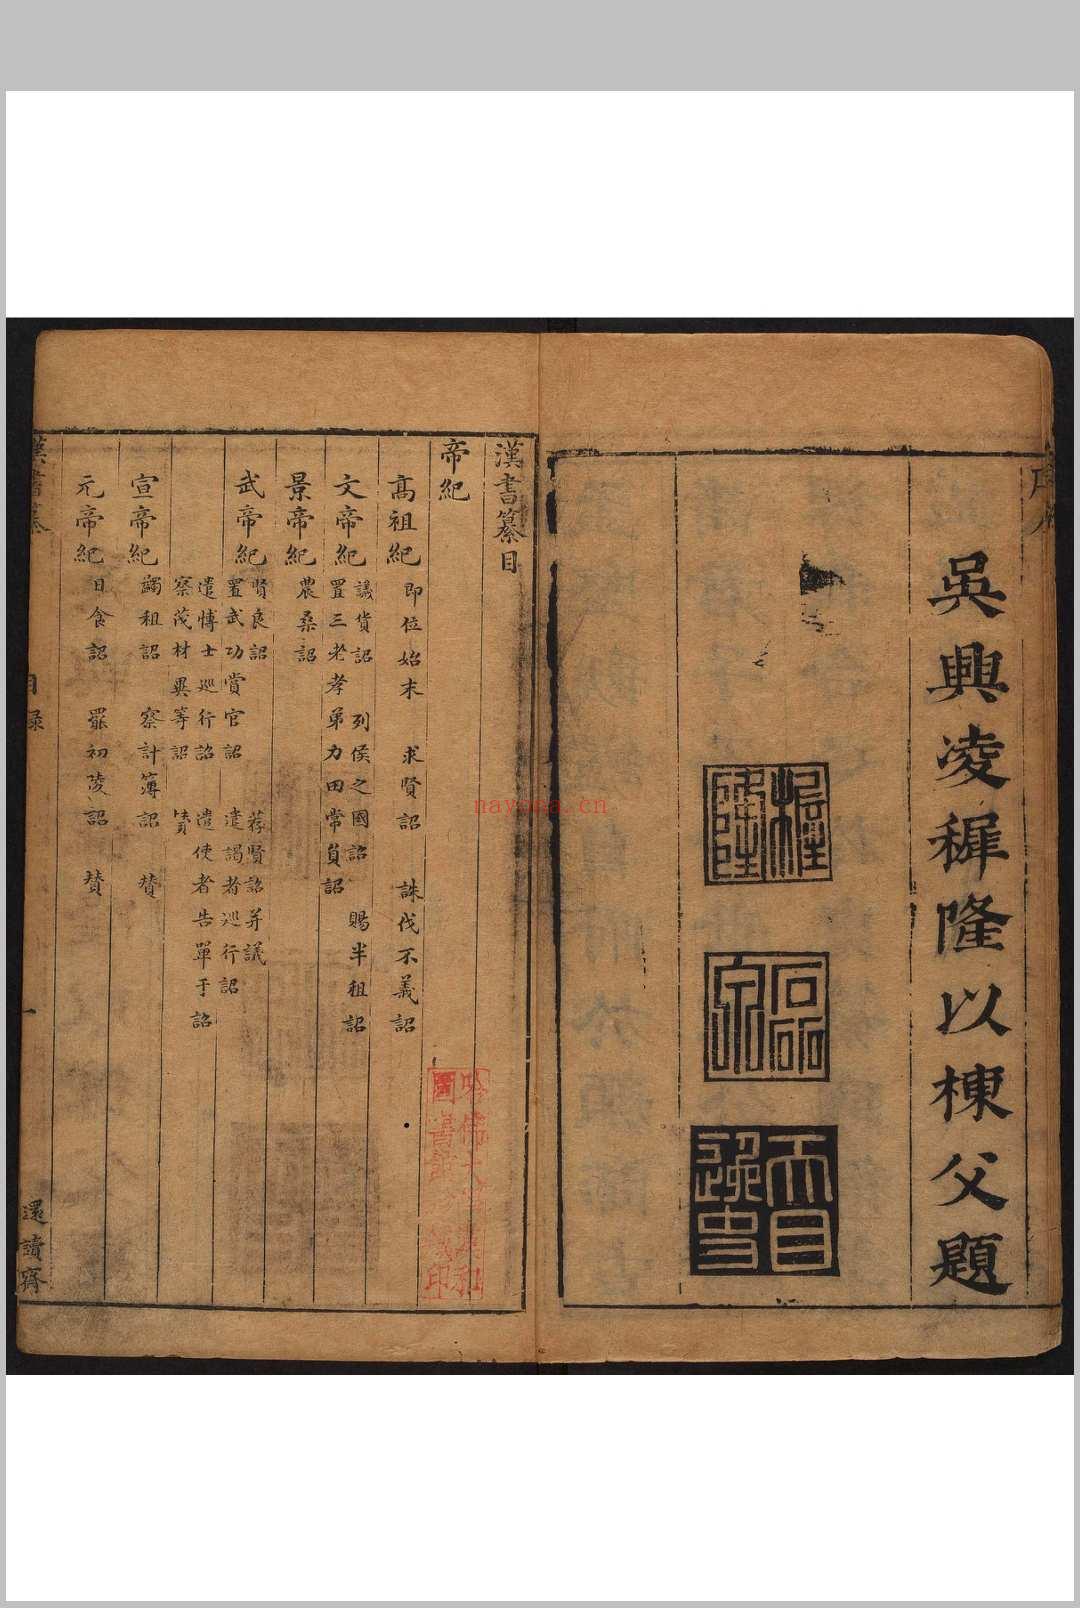 吳興凌稺隆以棟父題
稺隆
天目逸史
漢書纂目
帝紀
高祖紀 即位始末 求賢詔 誅伐不義詔
文帝紀 議貨詔 列侯之國詔 賜半租詔
置三老孝弟力田常員詔
景帝紀 農桑詔
武帝紀 賢良詔 荐賢詔并議
置武功賞官詔 遣謁者巡行詔
遣博士巡行詔 遣使者告單于詔
察茂材異等詔 賛
宣帝紀 蠲租詔 察計簿詔 賛
元帝紀 日食詔 罷初陵詔 賛
漢書纂
目錄
一
還讀齋
哈佛大學漢和
圖書館珍藏印
nayona.cn